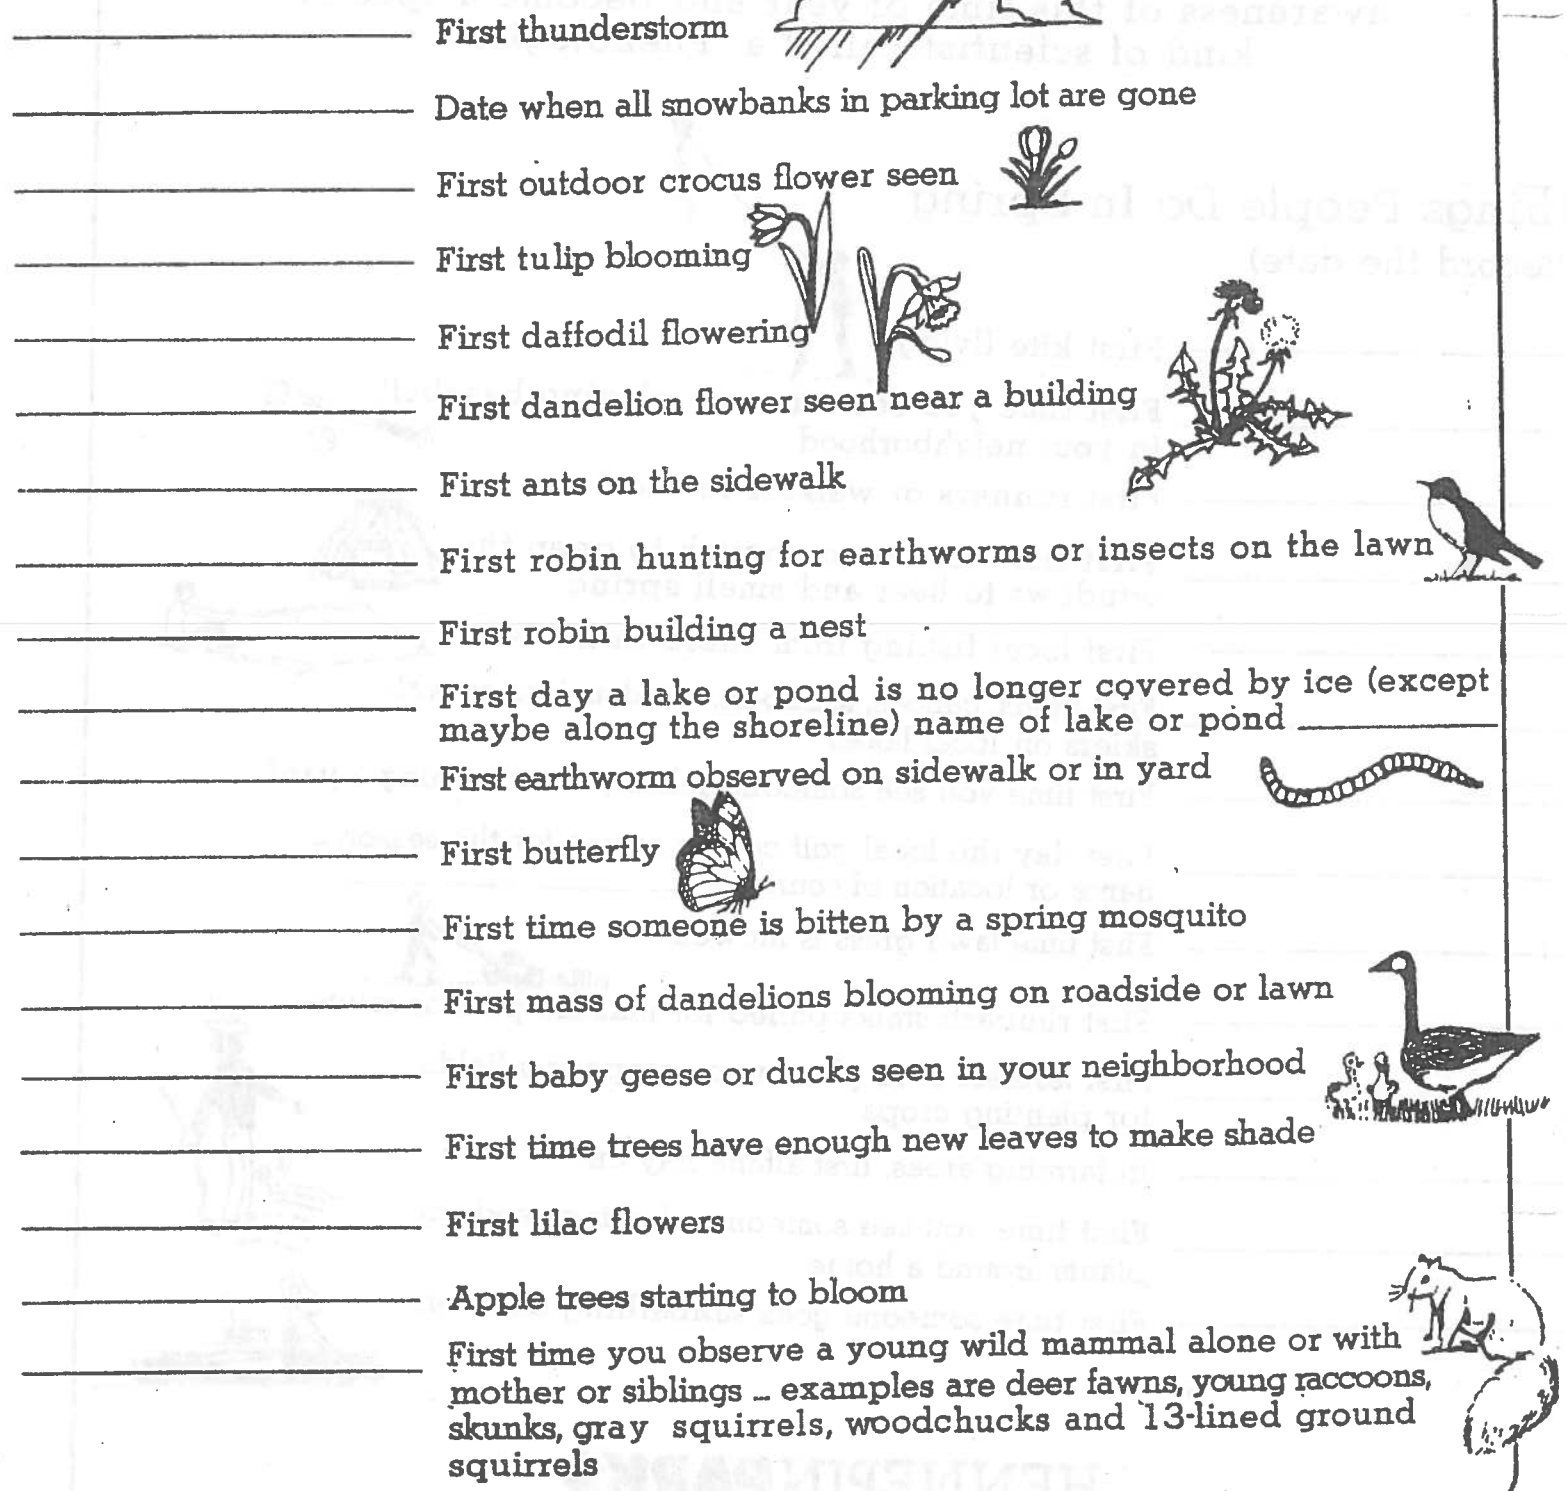 First thunderstorm
Date when all snowbanks in parking lot are gone
First outdoor crocus flower seen
First tulip blooming
First daffodil flowering
First dandelion flower seen near a building
First ants on the sidewalk
First robin hunting for earthworms or insects on the lawn
First robin building a nest
First day a lake or pond is no longer covered by ice (except
maybe along the shoreline) name of lake or pond
First earthworm observed on sidewalk or in yard
First butterfly
First time someone is bitten by a spring mosquito
First mass of dandelions blooming on roadside or lawn
First baby geese or ducks seen in your neighborhood
First time trees have enough new leaves to make shade
First lilac flowers
Apple trees starting to bloom
First time you observe a young wild mammal alone or with
mother or siblings – examples are deer fawns, young raccoons,
skunks, gray squirrels, woodchucks and 13-lined ground
squirrels